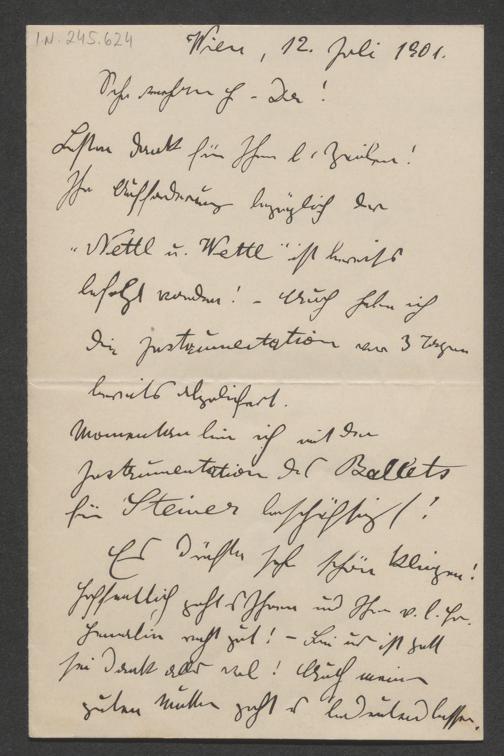 I.N. 245.624
Wien, 12. Juli 1901.
Sehr H - Dr!
Besten Dank für Ihre l. Zeilen!
Ihre Aufforderung bezüglich der
"Nettl u. Wettl" ist bereits
befolgt worden! - Auch habe ich
die Instrumentation vor 3 Tagen
bereits abgeliefert.
Momentan bin ich mit der
Instrumentation des Ballets
für Steiner beschäftigt!
Es dürfte sehr schön klingen!
Hoffentlich geht's Ihnen und Ihrer v. l. Fr.
Gemalin recht gut! - Bei uns ist gott
sei Dank alles wol! Auch meiner
guten Mutter geht es bedeutend besser.